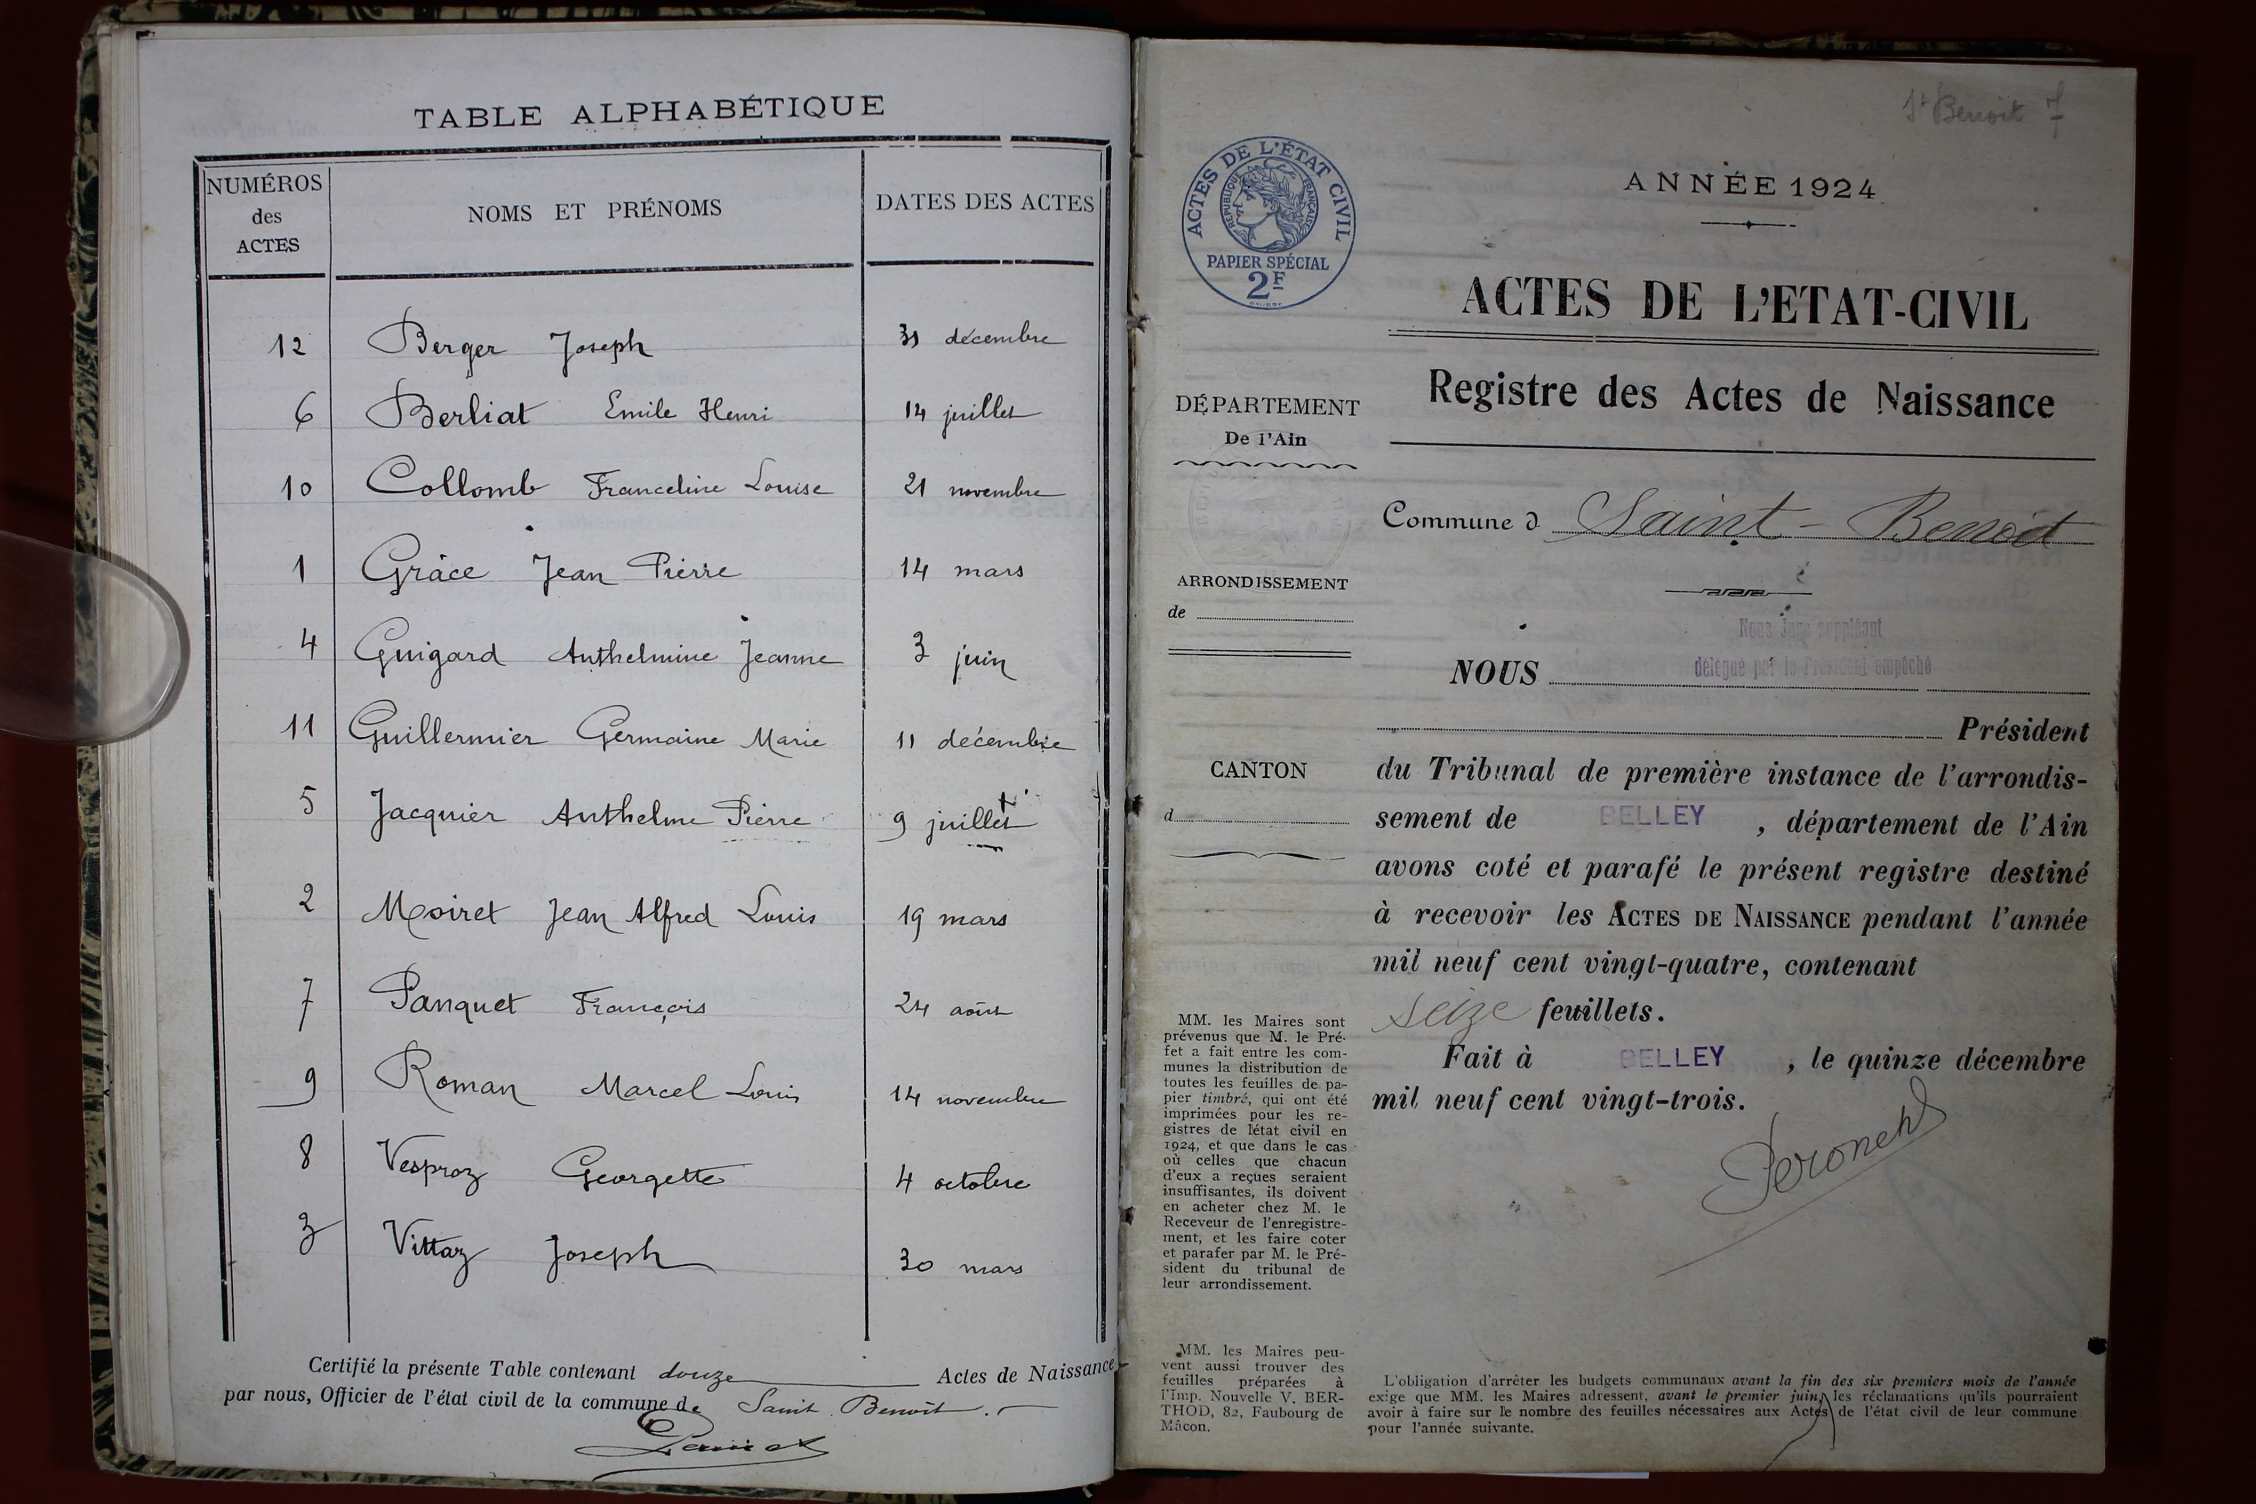 TABLE ALPHABÉTIQUE
NUMÉROS des ACTES NOMS ET PRÉNOMS DATES DES ACTES
12 Berger Joseph 31 décembre
6 Berliat Emile Henri 14 juillet
10 Collomb Franceline Louise 21 novembre
1 Grâce Jean Pierre 14 mars
4 Guigard Anthelmine Jeanne 3 juin
11 Guillermier Germaine Marie 11 décembre
5 Jacquier Anthelme Pierre 9 juillet
2 Moiret Jean Alfred Louis 19 mars
7 Panquet François 24 août
9 Roman Marcel Louis 14 novembre
8 Vesproz Georgette 4 octobre
3 Vittaz Joseph 30 mars
Certifié la présente Table contenant douze Actes de Naissance
par nous, Officier de l'état civil de la commune de Saint Benoît.
St Benoit 7
ACTES DE L'ÉTAT CIVIL
RÉPUBLIQUE FRANÇAISE
PAPIER SPÉCIAL
2F
ANNÉE 1924
ACTES DE L'ETAT-CIVIL
Registre des Actes de Naissance
DÉPARTEMENT
De l'Ain
Commune d Saint-Benoit
ARRONDISSEMENT
de
Nous Juge suppléant
délégué par le Président empêché
NOUS
Président
CANTON
d
du Tribunal de première instance de l'arrondis-
sement de BELLEY, département de l'Ain
avons coté et parafé le présent registre destiné
à recevoir les ACTES DE NAISSANCE pendant l'année
mil neuf cent vingt-quatre, contenant
seize feuillets.
Fait à BELLEY, le quinze décembre
mil neuf cent vingt-trois.
MM. les Maires sont
prévenus que M. le Pré-
fet a fait entre les com-
munes la distribution de
toutes les feuilles de pa-
pier timbré, qui ont été
imprimées pour les re-
gistres de l'état civil en
1924, et que dans le cas
où celles que chacun
d'eux a reçues seraient
insuffisantes, ils doivent
en acheter chez M. le
Receveur de l'enregistre-
ment, et les faire coter
et parafer par M. le Pré-
sident du tribunal de
leur arrondissement.
MM. les Maires peu-
vent aussi trouver des
feuilles préparées à
l'Imp. Nouvelle V. BER-
THOD, 82, Faubourg de
Mâcon.
L'obligation d'arrêter les budgets communaux avant la fin des six premiers mois de l'année
exige que MM. les Maires adressent, avant le premier juin, les réclamations qu'ils pourraient
avoir à faire sur le nombre des feuilles nécessaires aux Actes de l'état civil de leur commune
pour l'année suivante.